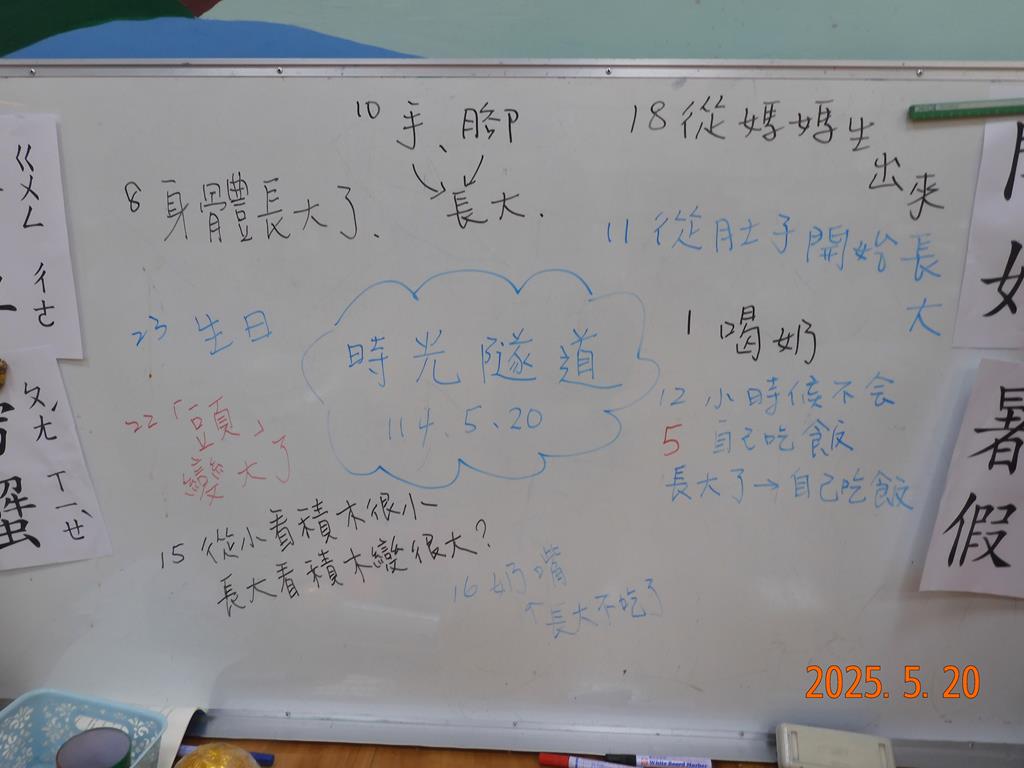 10 手、腳
長大.
18 從媽媽生
出來
8 身體長大了.
11 從肚子開始長
大
23 生日
時光隧道
114.5.20
1 喝奶
12 小時候不会
5 自己吃飯
長大了→自己吃飯
22「豆頁」
變大了
15 從小看積木很小
長大看積木變很大?
16 奶嘴
長大不吃了
ㄍㄨㄥ
ㄔㄜ
ㄆㄤˊ
ㄒㄧㄝˋ
蟹
暑
假
White Board Marker
2025. 5. 20